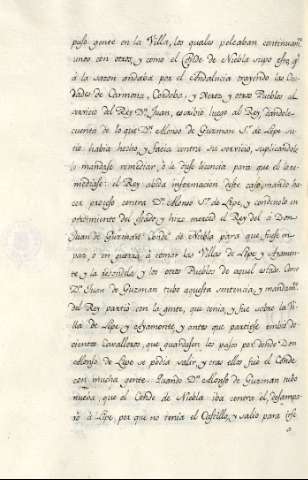 puso gente en la Villa, los quales peleaban continuam.te
unos con otros, y como el Conde de Niebla supo esto, q.e
à la sazon andaba por el Andalucia trayendo las Ciu-
dades de Carmona, Cordoba, y Xerez y otros Pueblos al
servicio del Rey D.n Juan, escribio luego al Rey, dandole
cuenta de lo que D.n Alonso de Guzman S.or de Lepe su
tio havia hecho, y hacia contra su servicio, suplicandole
lo mandase remediar, ò le diese licencia para que el lo re-
mediase: el Rey abida informacion deste caso, mandò ha-
cer proceso contra D.n Alonso S.or de Lepe, y condenolo en
perdimiento del estado, y hizo merced el Rey del à Don
Juan de Guzman Conde de Niebla para que fuese en
paz, ò en guerra à tomar las Villas de Lepe y Ayamon-
te y la Redondela y los otros Pueblos de aquel estado. Como
D.n Juan de Guzman tubo aquesta sentencia, y mandam.to
del Rey partiò con la gente, que tenia, y fue sobre la Vi-
lla de Lepe, y Ayamonte, y antes que partiese embiò do-
cientos Cavalleros, que guardasen los pasos por donde Don
Alonso de Lepe se podia salir, y tras ellos fue el Conde
con mucha gente. Quando D.n Alonso de Guzman tubo
nueba, que el Conde de Niebla iba contra el, desampa-
rò à Lepe, por que no tenia el Castillo, y salio para irse
a